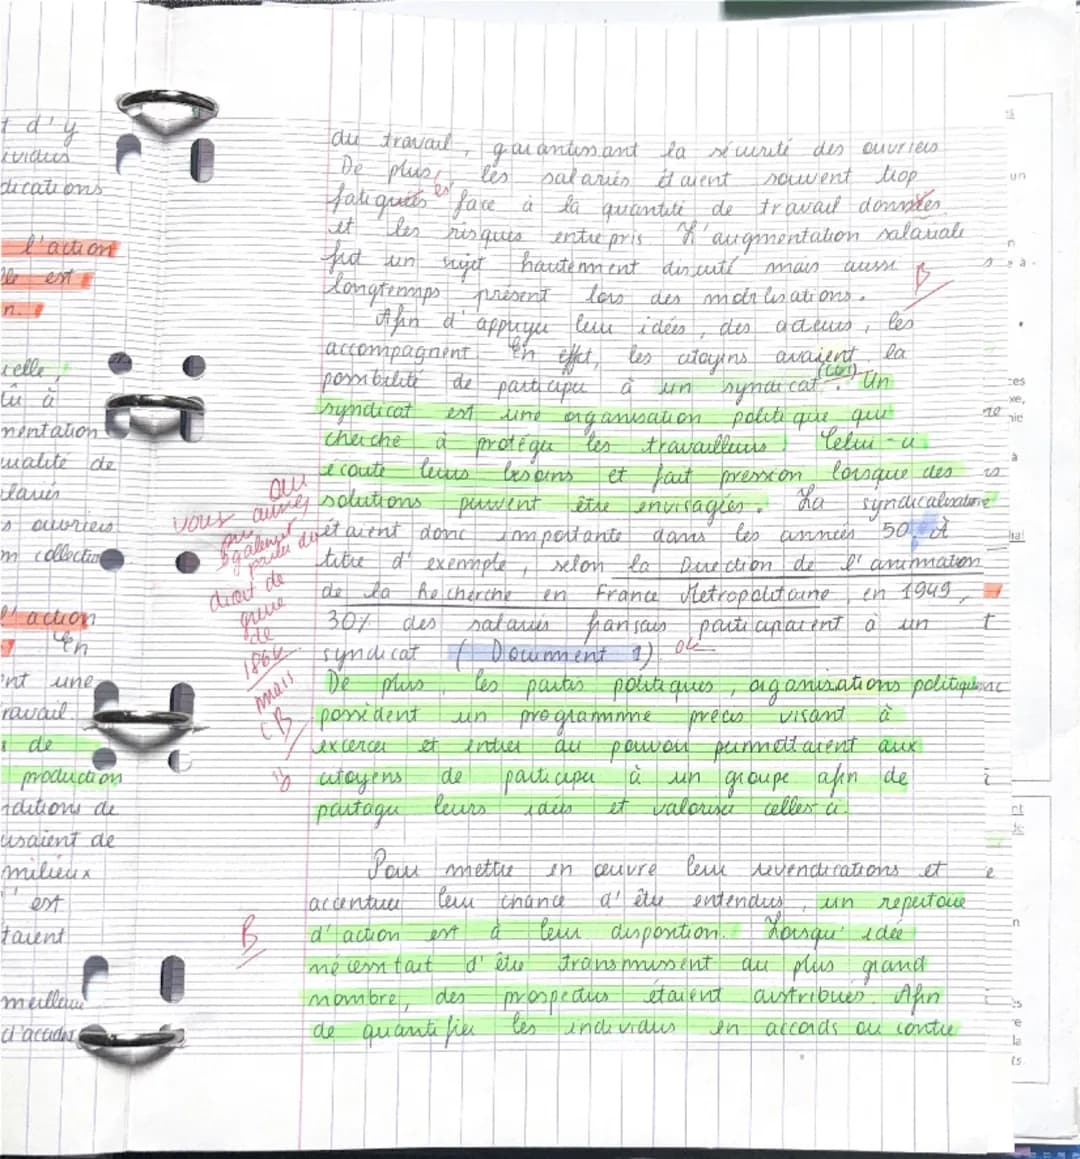 t d'y
ividus
dications
l'action
lle est
n.
elle,
û à
mentation
ualité de
lariés
s ouvriers
n collective
l'action
En
ent une
ravail
s de
production
nditions de
usaient de
milieux
est
taient
meilleure
d'accident
du travail, garantissant la sécurité des ouvriers
De plus, les salariés étaient souvent trop
fatiguées és face à la quantité de travail données
et les risques entrepris. L'augmentation salariale
fut un sujet hautement discuté mais aussi
longtemps présent lors des mobilisations.
B
Afin d'appuyer leur idées, des acteurs, les
accompagnent. En effet, les citoyens avaient la
possibilité de participer à un syndicat. Un
syndicat est une organisation politique qui
cherche à protéger les travailleurs. Celui-ci
écoute leurs besoins et fait pression lorsque des
solutions peuvent être envisagées. La syndicalisation
étaient donc importante dans les années 50. À
titre d'exemple, selon la Direction de l'animation
de la Recherche en France Metropolitaine, en 1949,
30% des salariés fransais participaient à un
syndicat (Document 1) ok
De plus, les partis politiques, organisations politiques
possèdent un programmme précis visant à
excercer et entrer au pouvoir permettaient aux
citoyens de participer à un groupe afin de
partager leurs idées et valoriser celles ci.
oui
vous auriez
pu
également
parler du
droit de
grève
de
1864
mais
(B
B
Pour mettre en œuvre leur revendications et
accentuer leur chance d'être entendus, un repertoire
d'action est à leur dispostion. Lorsqu'idée
nécessitait d'être transmissent au plus grand
nombre, des prospectus étaient distribués. Afin
de quantifier les individus en accords ou contre
B